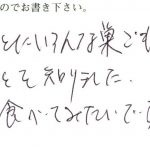 のでお書き下さい。
とにいろんな巣ごも
とを知りました.
食べてみたいで